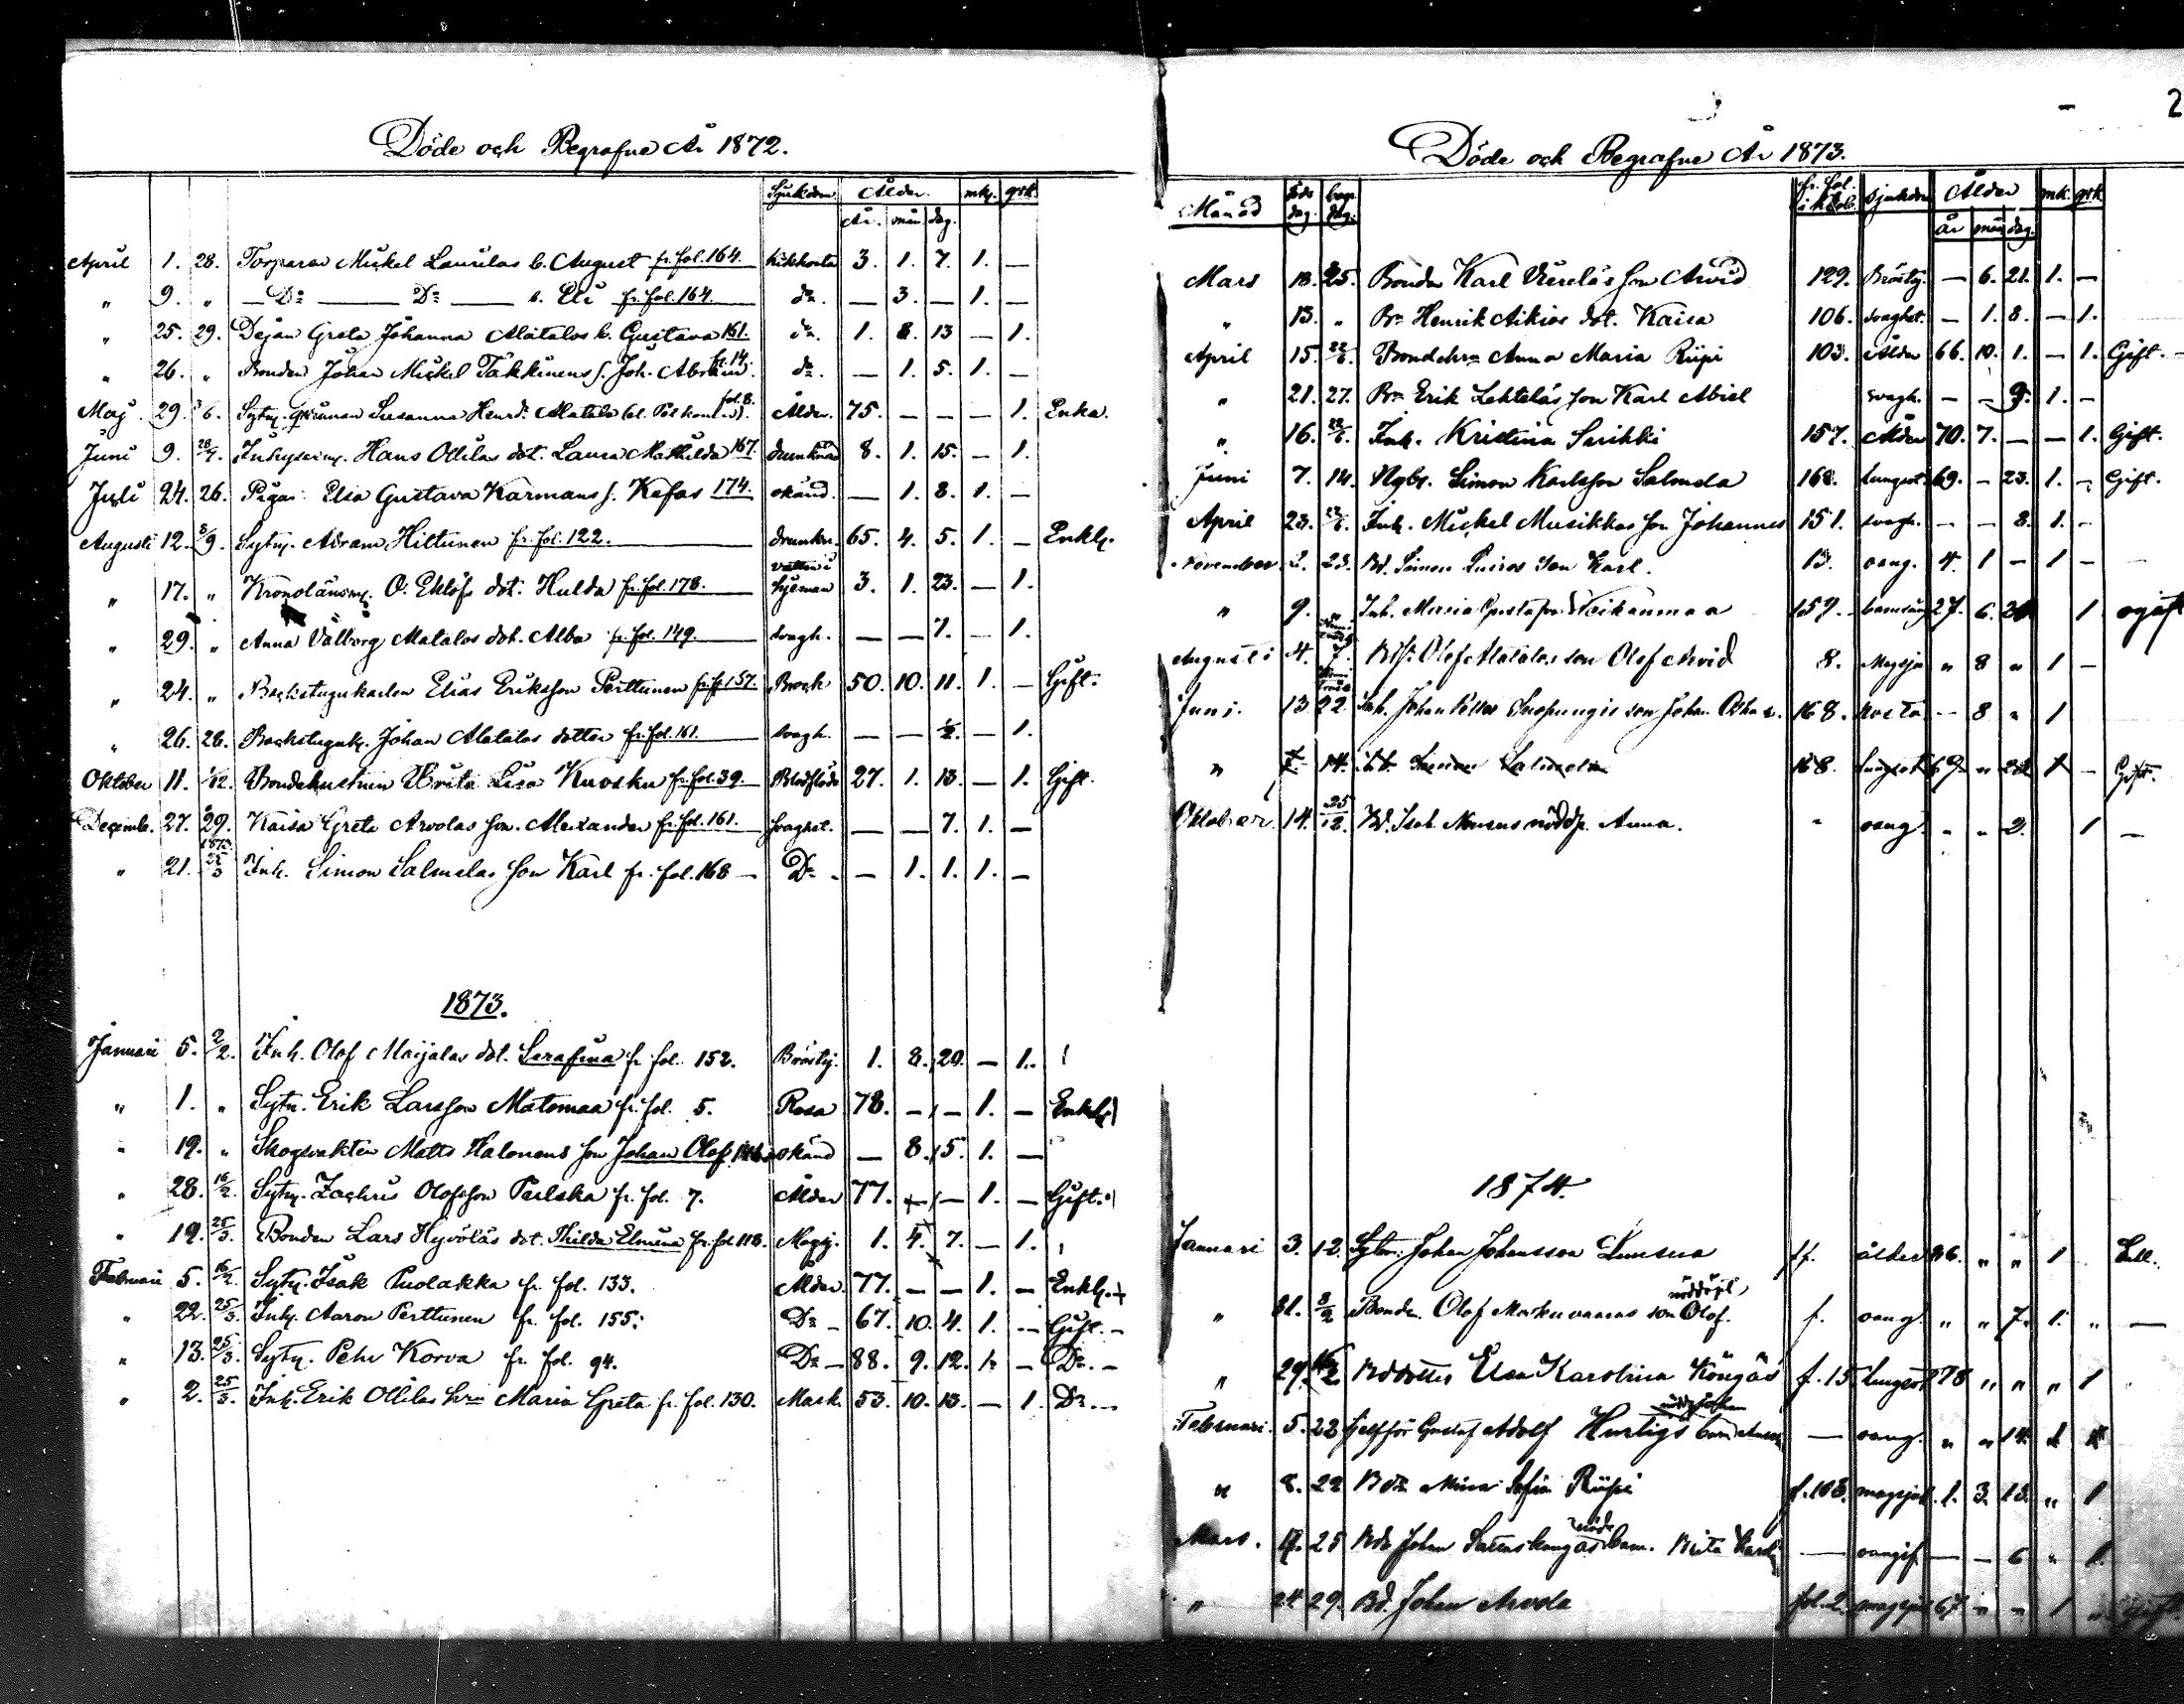 Döde och Begrafne År 1872.
Sjukdom. Ålder. mk. qvk.
År. mån. dag.
April 1. 28. Torparen Mickel Laurilas b. August fr. fol. 164. Kikhosta 3. 1. 7. 1. —
" 9. " — Do — Do — s. Eli fr. fol. 164. do. — 3. — 1. —
" 25. 29. Dejan Greta Johanna Alatalos b. Gustava 161. do. 1. 8. 13 — 1.
" 26. " Bonden Johan Mickel Takkinens s. Joh. Abraham fr. 14. do. — 1. 5. 1. —
Maj. 29. 6. Sytn. Susanna Henrd. Alatalo fol. 8. Ålder. 75. — — — 1. Enka.
Juni 9. 28/7. Inhysesm. Hans Ollilas dot. Laura Mathilda 167. drunknad 8. 1. 15. — 1.
Juli 24. 26. Pigan Elsa Gustava Karmans s. Kafas 174. okänd. — 1. 8. 1. —
Augusti 12. 8/9. Sytn. Abram Hiltunen fr. fol. 122. drunkn. 65. 4. 5. 1. — Enkl.
" 17. " Kronolänsm. O. Eklöfs dot. Hulda fr. fol. 178. vatten i hjernan 3. 1. 23. — 1.
" 29. " Anna Valborg Matalas dot. Alba fr. fol. 149. svagh. — — 7. — 1.
" 24. " Backstugukarlen Elias Eriksson Perttunen fr. f. 157. Brock 50. 10. 11. 1. — Gift.
" 26. 28. Backstuguk. Johan Alatalos dotter fr. fol. 161. svagh. — — ½. — 1.
Oktober 11. 1/12. Bondehustrun Brita Lisa Kuosku fr. fol. 39. Blodflöde 27. 1. 13. — 1. Gift.
Decemb. 27. 29. Kaisa Greta Arvolas son Alexander fr. fol. 161. svaghet. — — 7. 1. —
" 21. 1873 25/3 Inh. Simon Salmelas son Karl fr. fol. 168 — Do. — 1. 1. 1. —
1873.
Januari 5. 2/2. Inh. Olof Maijalas dot. Serafina fr. fol. 152. Bröstsj. 1. 8. 20. — 1.
" 1. " Sytn. Erik Larsson Matomaa fr. fol. 5. Rosa 78. — — 1. — Enkl.
" 19. " Skogsvakten Matts Halonens son Johan Olof okänd — 8. 5. 1. —
" 28. 16/2. Sytn. Zachris Olofsson fr. fol. 7. Ålder 77. — — 1. — Gift.
" 19. 25/3. Bonden Lars Hyvöläs dot. Thilda Elmina fr. fol. 118. Magsj. 1. 4. 7. — 1.
Februari 5. 16/2. Sytn. Isak Puolakka fr. fol. 133. Ålder. 77. — — 1. — Enkl.
" 22. 25/3. Inh. Aaron Perttunen fr. fol. 155. Do — 67. 10. 4. 1. — Gift. —
" 13. 25/3. Sytn. Pehr Korva fr. fol. 94. Do — 88. 9. 12. 1. — Do. —
" 2. 25/3. Inh. Erik Ollilas hru Maria Greta fr. fol. 130. Mask. 53. 10. 13. — 1. Do. —
Döde och Begrafne År 1873.
Månad död. dag. begr. dag. fr. fol. Sjukdom Ålder mk. qvk
år mån dag.
Mars 13. 25. Bonden Karl son Arvid 129. Bröstsj. — 6. 21. 1. —
" 13. " Bn Henrik Aikios dot. Kaisa 106. svaghet. — 1. 8. — 1.
April 15. 22/6. Bondehru Anna Maria Riipi 103. Ålder 66. 10. 1. — 1. Gift. —
" 21. 27. Bn Erik Lehteläs son Karl Abiel svagh. — — 9. 1. —
" 16. 22/6. Inh. Kristina Sirikki 157. Ålder 70. 7. — — 1. Gift.
Juni 7. 14. Nybr. Simon Karlsson Salmela 168. lungsot 69. — 23. 1. — Gift.
April 23. 22/6. Inh. Mickel Musikkas son Johannes 151. svagh. — — 8. 1. —
November 2. 23. Bd. Simon son Karl. 13. svag. 4. 1 — 1 —
" 9. " Inh. Maria Gustafva Neikanmaa 159. barnsäng 27. 6. 30 1 ogift
Augusti 4. 7. Bd. Olof Alatalos son Olof Arvid 8. Magsju " 8 " 1 —
Juni. 13 22. Inh. Johan Petter son Johan Oskar. 168. hosta — 8 " 1
" 7. 14. Inh. Simon Salmela 168. lungsot 69. " 23 1 — Gift.
Oktober 14. 25/12. Bd. Isak nöddp. Anna. " svag. " " 2. 1 —
1874.
Januari 3. 12. Sytn. Johan Johansson ålder " " 1
" 31. 8/2 Bonden Olof Markuvaaras son nöddöpt Olof. f. svag. " " 7. 1. " —
" 29. Bddotter Elsa Karolina Köngäs f. 15. lungsot 78 " " " 1
Februari. 5. 22 Gustaf Adolf Hurtigs barn — svag. " " 14.
" 8. 22 Bdr Mina Sofia Riipi f. 103. magsjuk. 1. 3. 13. " 1
Mars. 25 Bde Johan barn. Brita — — — 6 " 1
" 24 29. Bd. Johan Arvola fol. 2. magsjuk 67 " " 1 " Gift